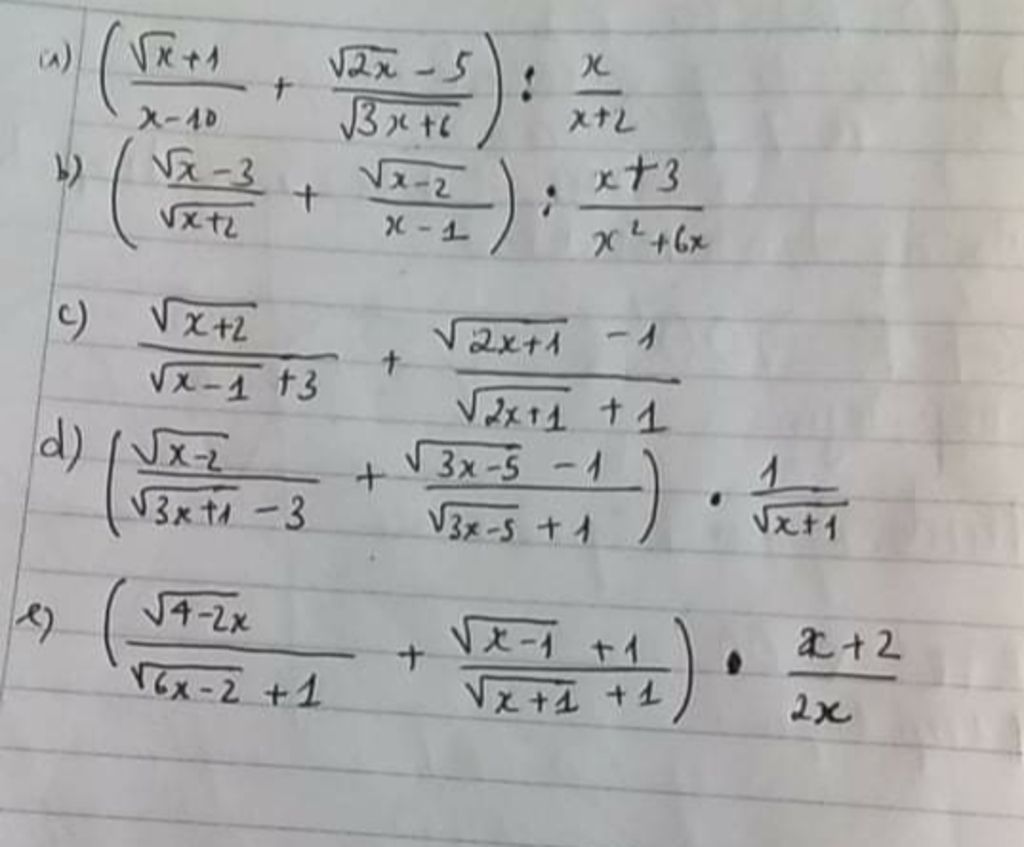 a) (\frac{\sqrt{x}+1}{x-10} + \frac{\sqrt{2x}-5}{\sqrt{3x+6}}) : \frac{x}{x+2}
b) (\frac{\sqrt{x}-3}{\sqrt{x+2}} + \frac{\sqrt{x-2}}{x-1}) : \frac{x+3}{x^2+6x}
c) \frac{\sqrt{x+2}}{\sqrt{x-1}+3} + \frac{\sqrt{2x+1}-1}{\sqrt{2x+1}+1}
d) (\frac{\sqrt{x-2}}{\sqrt{3x+1}-3} + \frac{\sqrt{3x-5}-1}{\sqrt{3x-5}+1}) . \frac{1}{\sqrt{x+1}}
e) (\frac{\sqrt{4-2x}}{\sqrt{6x-2}+1} + \frac{\sqrt{x-1}+1}{\sqrt{x+1}+1}) . \frac{x+2}{2x}